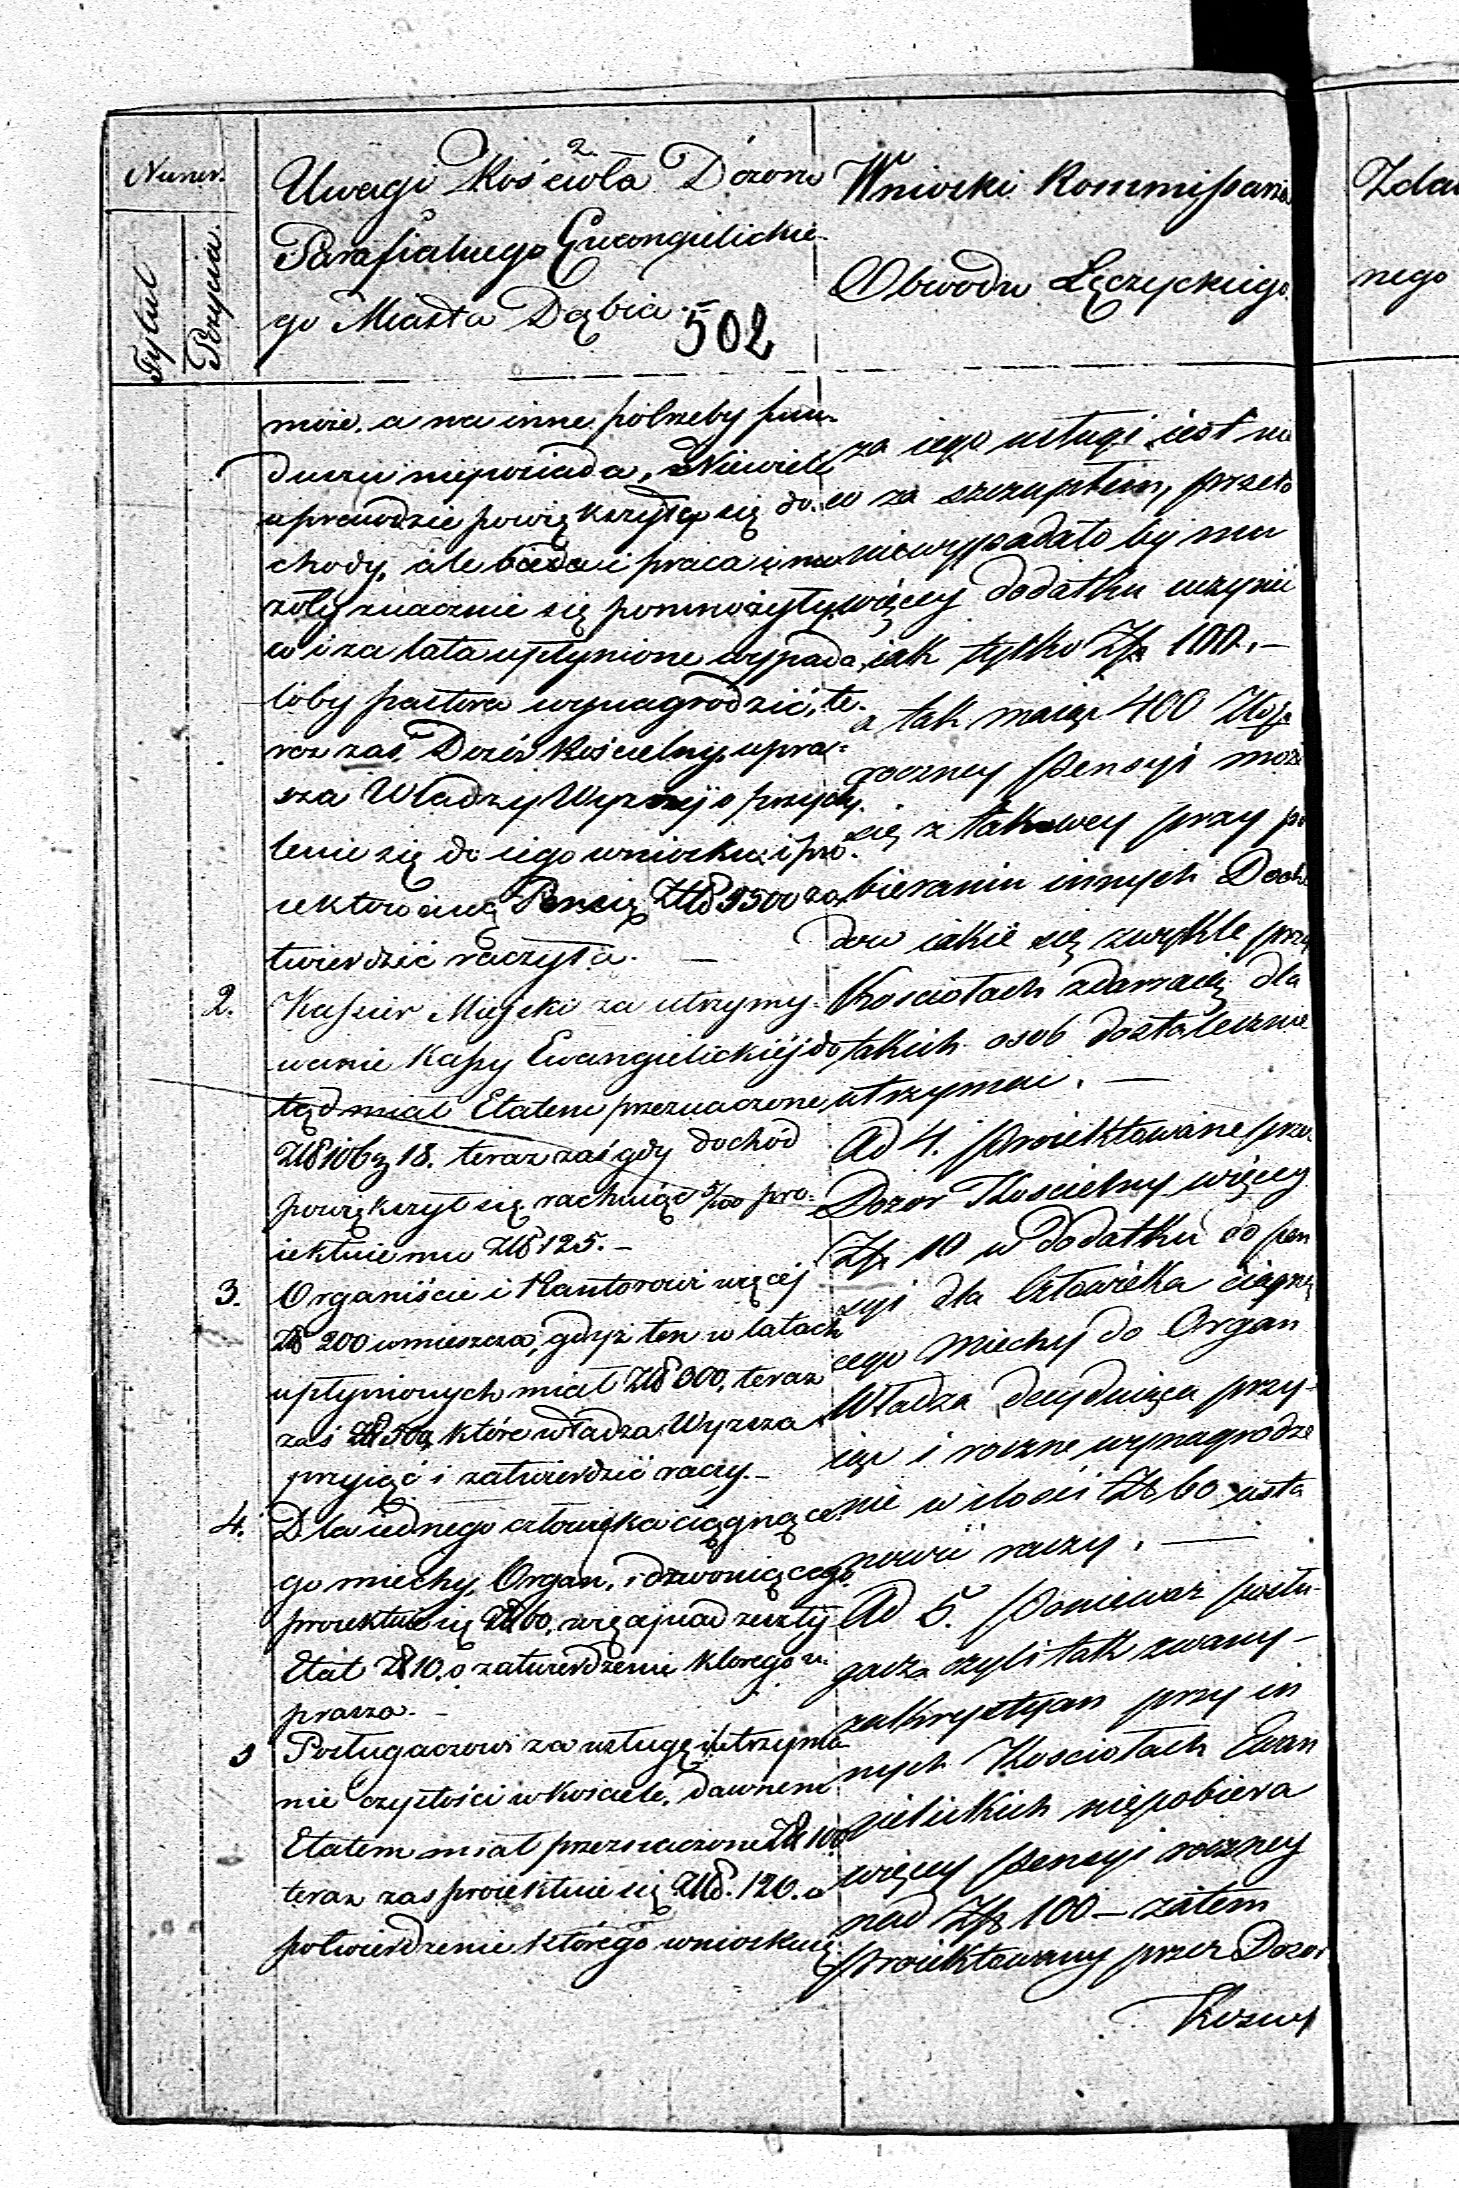 Numer.
Tytuł
Pozycia.
2
Uwagi Kościoła Dozoru
Parafialnego Ewangelickie-
go Miasta Dąbia.
502
może, a na inne potrzeby fun-
duszu nieposiada, Niewiele
uprawdzie powiększyły się do-
chody, ale bieda i praca i mo-
zoły znacznie się pomnożyły,
w i za lata upłynione wypada
łoby pastora wynagrodzić, te-
raz zaś Dozór Kościelny upra-
sza Władzy Wyższéj o przychy-
lenie się do iego wniosku i pro-
iektowaną Pensię Złł 3500 za
twierdzić raczyła. —
2. Kassier Mieyski za utrzymy-
wanie Kassy Ewangielickiéj do
tąd miał Etatem przeznaczone
Złł 106 g 18. teraz zaś gdy dochód
powiększył się rachuiąc 5/100 pro-
iektuie mu Złł 125. —
3. Organiście i Kantorowi więcéj
Złł 200 umieszcza, gdyż ten w latach
upłynionych miał Złł 300, teraz
zaś Złł 500, które władza Wyższa
przyiąć i zatwierdzić raczy. —
4. Dla iednego człowieka ciągnące-
go miechy, Organ, i dzwoniącego
proiektuie się Złł 60, więcéj nad zeszły
Etat Zł 10, o zatwierdzenie którego u-
prasza. —
5 Posługaczowi za usługę i utrzyma
nie czystości w kościele, dawnem
Etatem miał przeznaczone Złł 100
teraz zaś proiektuie się Złł. 120. o
potwierdzenie którego wnioskuię.
Wnioski Kommissarza
Obwodu Łęczyckiego.
za iego usługi iest nie
co za szczupłem, przeto
niewypadało by mu
więcey dodatku uczynić
iak tylko Złp 100. —
a tak maiąc 400 Złop
roczney Pensyi może
się z takowey przy po
bieraniu innych Docho
dow iakie się zwykle przy
Kosciołach zdarzaią, dla
takich osob dostatecznie
utrzymać. —
Ad 4. Proiektowane przez
Dozor Koscielny więcey
Złp 10 w dodatku do pen
syi dla Człowieka ciągną
cego miechy do Organ
Władza decyduiąca przy-
iąć i roczne wynagrodze
nie w ilości Zł 60 usta
nowić raczy. —
Ad 5. Ponieważ posłu-
gacza czyli tak zwany —
zakrystyan przy in
nych Kosciołach Ewan
gielickich niepobiera
więcey Pensyi roczney
nad Złp 100 — zatem
proiektowany przez Dozor
Zda
nego